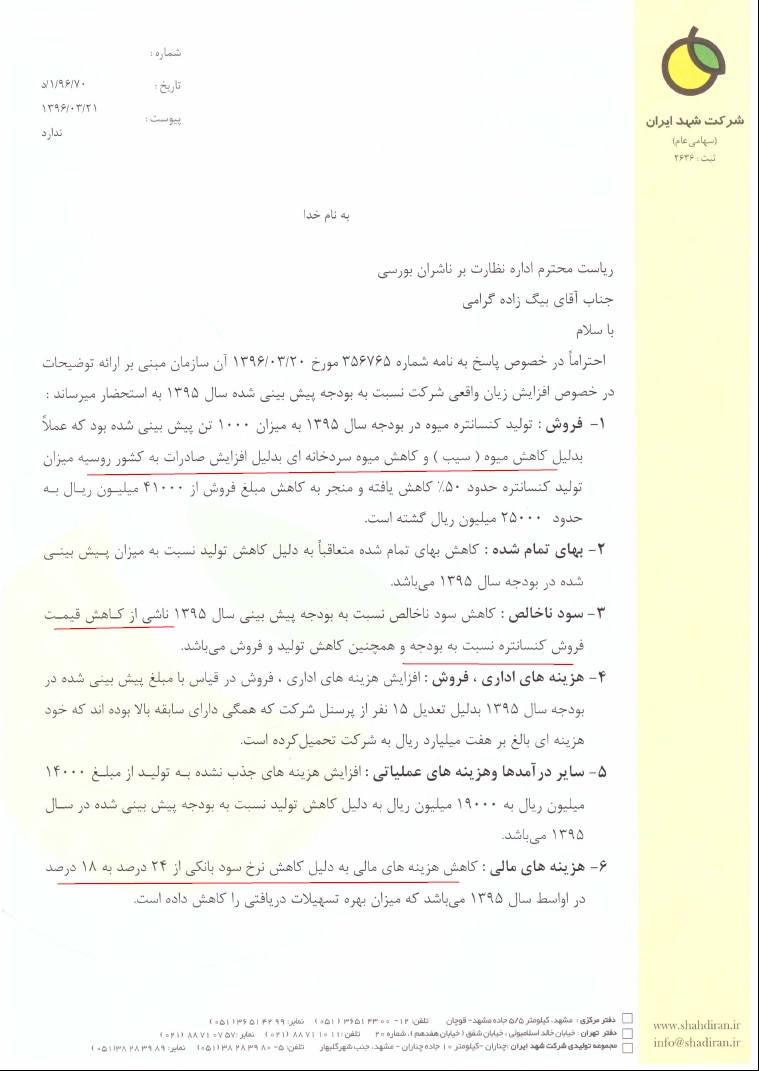 شرکت شهد ایران
(سهامی عام)
ثبت : ۲۶۳۶
شماره :
تاریخ : ۷۰/۱/۹۶/د
پیوست : ۱۳۹۶/۰۳/۲۱
ندارد
به نام خدا
ریاست محترم اداره نظارت بر ناشران بورسی
جناب آقای بیگ زاده گرامی
با سلام
احتراماً در خصوص پاسخ به نامه شماره ۳۵۶۷۶۵ مورخ ۱۳۹۶/۰۳/۲۰ آن سازمان مبنی بر ارائه توضیحات
در خصوص افزایش زیان واقعی شرکت نسبت به بودجه پیش بینی شده سال ۱۳۹۵ به استحضار میرساند :
۱- فروش : تولید کنسانتره میوه در بودجه سال ۱۳۹۵ به میزان ۱۰۰۰ تن پیش بینی شده بود که عملاً
بدلیل کاهش میوه ( سیب ) و کاهش میوه سردخانه ای بدلیل افزایش صادرات به کشور روسیه میزان
تولید کنسانتره حدود ۵۰٪ کاهش یافته و منجر به کاهش مبلغ فروش از ۴۱۰۰۰ میلیون ریال به
حدود ۲۵۰۰۰ میلیون ریال گشته است.
۲- بهای تمام شده : کاهش بهای تمام شده متعاقباً به دلیل کاهش تولید نسبت به میزان پیش بینی
شده در بودجه سال ۱۳۹۵ می‌باشد.
۳- سود ناخالص : کاهش سود ناخالص نسبت به بودجه پیش بینی سال ۱۳۹۵ ناشی از کاهش قیمت
فروش کنسانتره نسبت به بودجه و همچنین کاهش تولید و فروش می‌باشد.
۴- هزینه های اداری ، فروش : افزایش هزینه های اداری ، فروش در قیاس با مبلغ پیش بینی شده در
بودجه سال ۱۳۹۵ بدلیل تعدیل ۱۵ نفر از پرسنل شرکت که همگی دارای سابقه بالا بوده اند که خود
هزینه ای بالغ بر هفت میلیارد ریال به شرکت تحمیل‌کرده است.
۵- سایر درآمدها وهزینه های عملیاتی : افزایش هزینه های جذب نشده به تولید از مبلغ ۱۴۰۰۰
میلیون ریال به ۱۹۰۰۰ میلیون ریال به دلیل کاهش تولید نسبت به بودجه پیش بینی شده در سال
۱۳۹۵ می‌باشد.
۶- هزینه های مالی : کاهش هزینه های مالی به دلیل کاهش نرخ سود بانکی از ۲۴ درصد به ۱۸ درصد
در اواسط سال ۱۳۹۵ می‌باشد که میزان بهره تسهیلات دریافتی را کاهش داده است.
دفتر مرکزی : مشهد، کیلومتر ۵/۵ جاده مشهد- قوچان تلفن: ۱۲- ۰۰ ۴۳ ۳۶۵۱ (۰۵۱) نمابر: ۹۹ ۴۲ ۳۶۵۱ (۰۵۱)
دفتر تهران : خیابان خالد اسلامبولی ، خیابان شفق ( خیابان هفدهم )، شماره ۲۰ تلفن: ۱۱ ۱۰ ۷۱ ۸۸ (۰۲۱) نمابر: ۵۷ ۰۷ ۷۱ ۸۸ (۰۲۱)
مجموعه تولیدی شرکت شهد ایران : چناران -کیلومتر ۱۰ جاده چناران - مشهد، جنب شهرگلبهار تلفن: ۵- ۸۰ ۳۹ ۲۸ ۳۸ (۰۵۱) نمابر: ۸۹ ۳۹ ۲۸ ۳۸ (۰۵۱)
www.shahdiran.ir
info@shadiran.ir